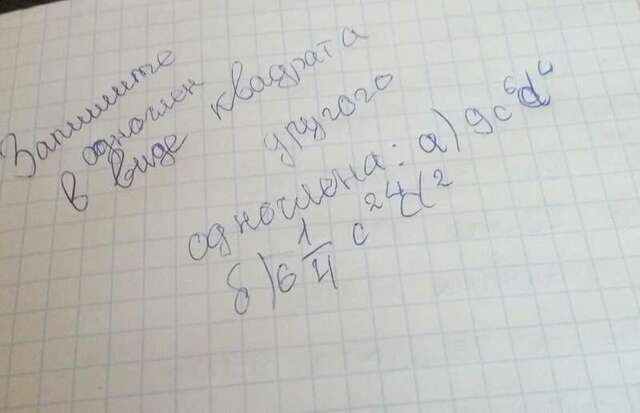 Запишите
одночлен
в виде квадрата
другого
одночлена: а) 9c⁶d⁴
б) 6 1/4 c²⁴d²